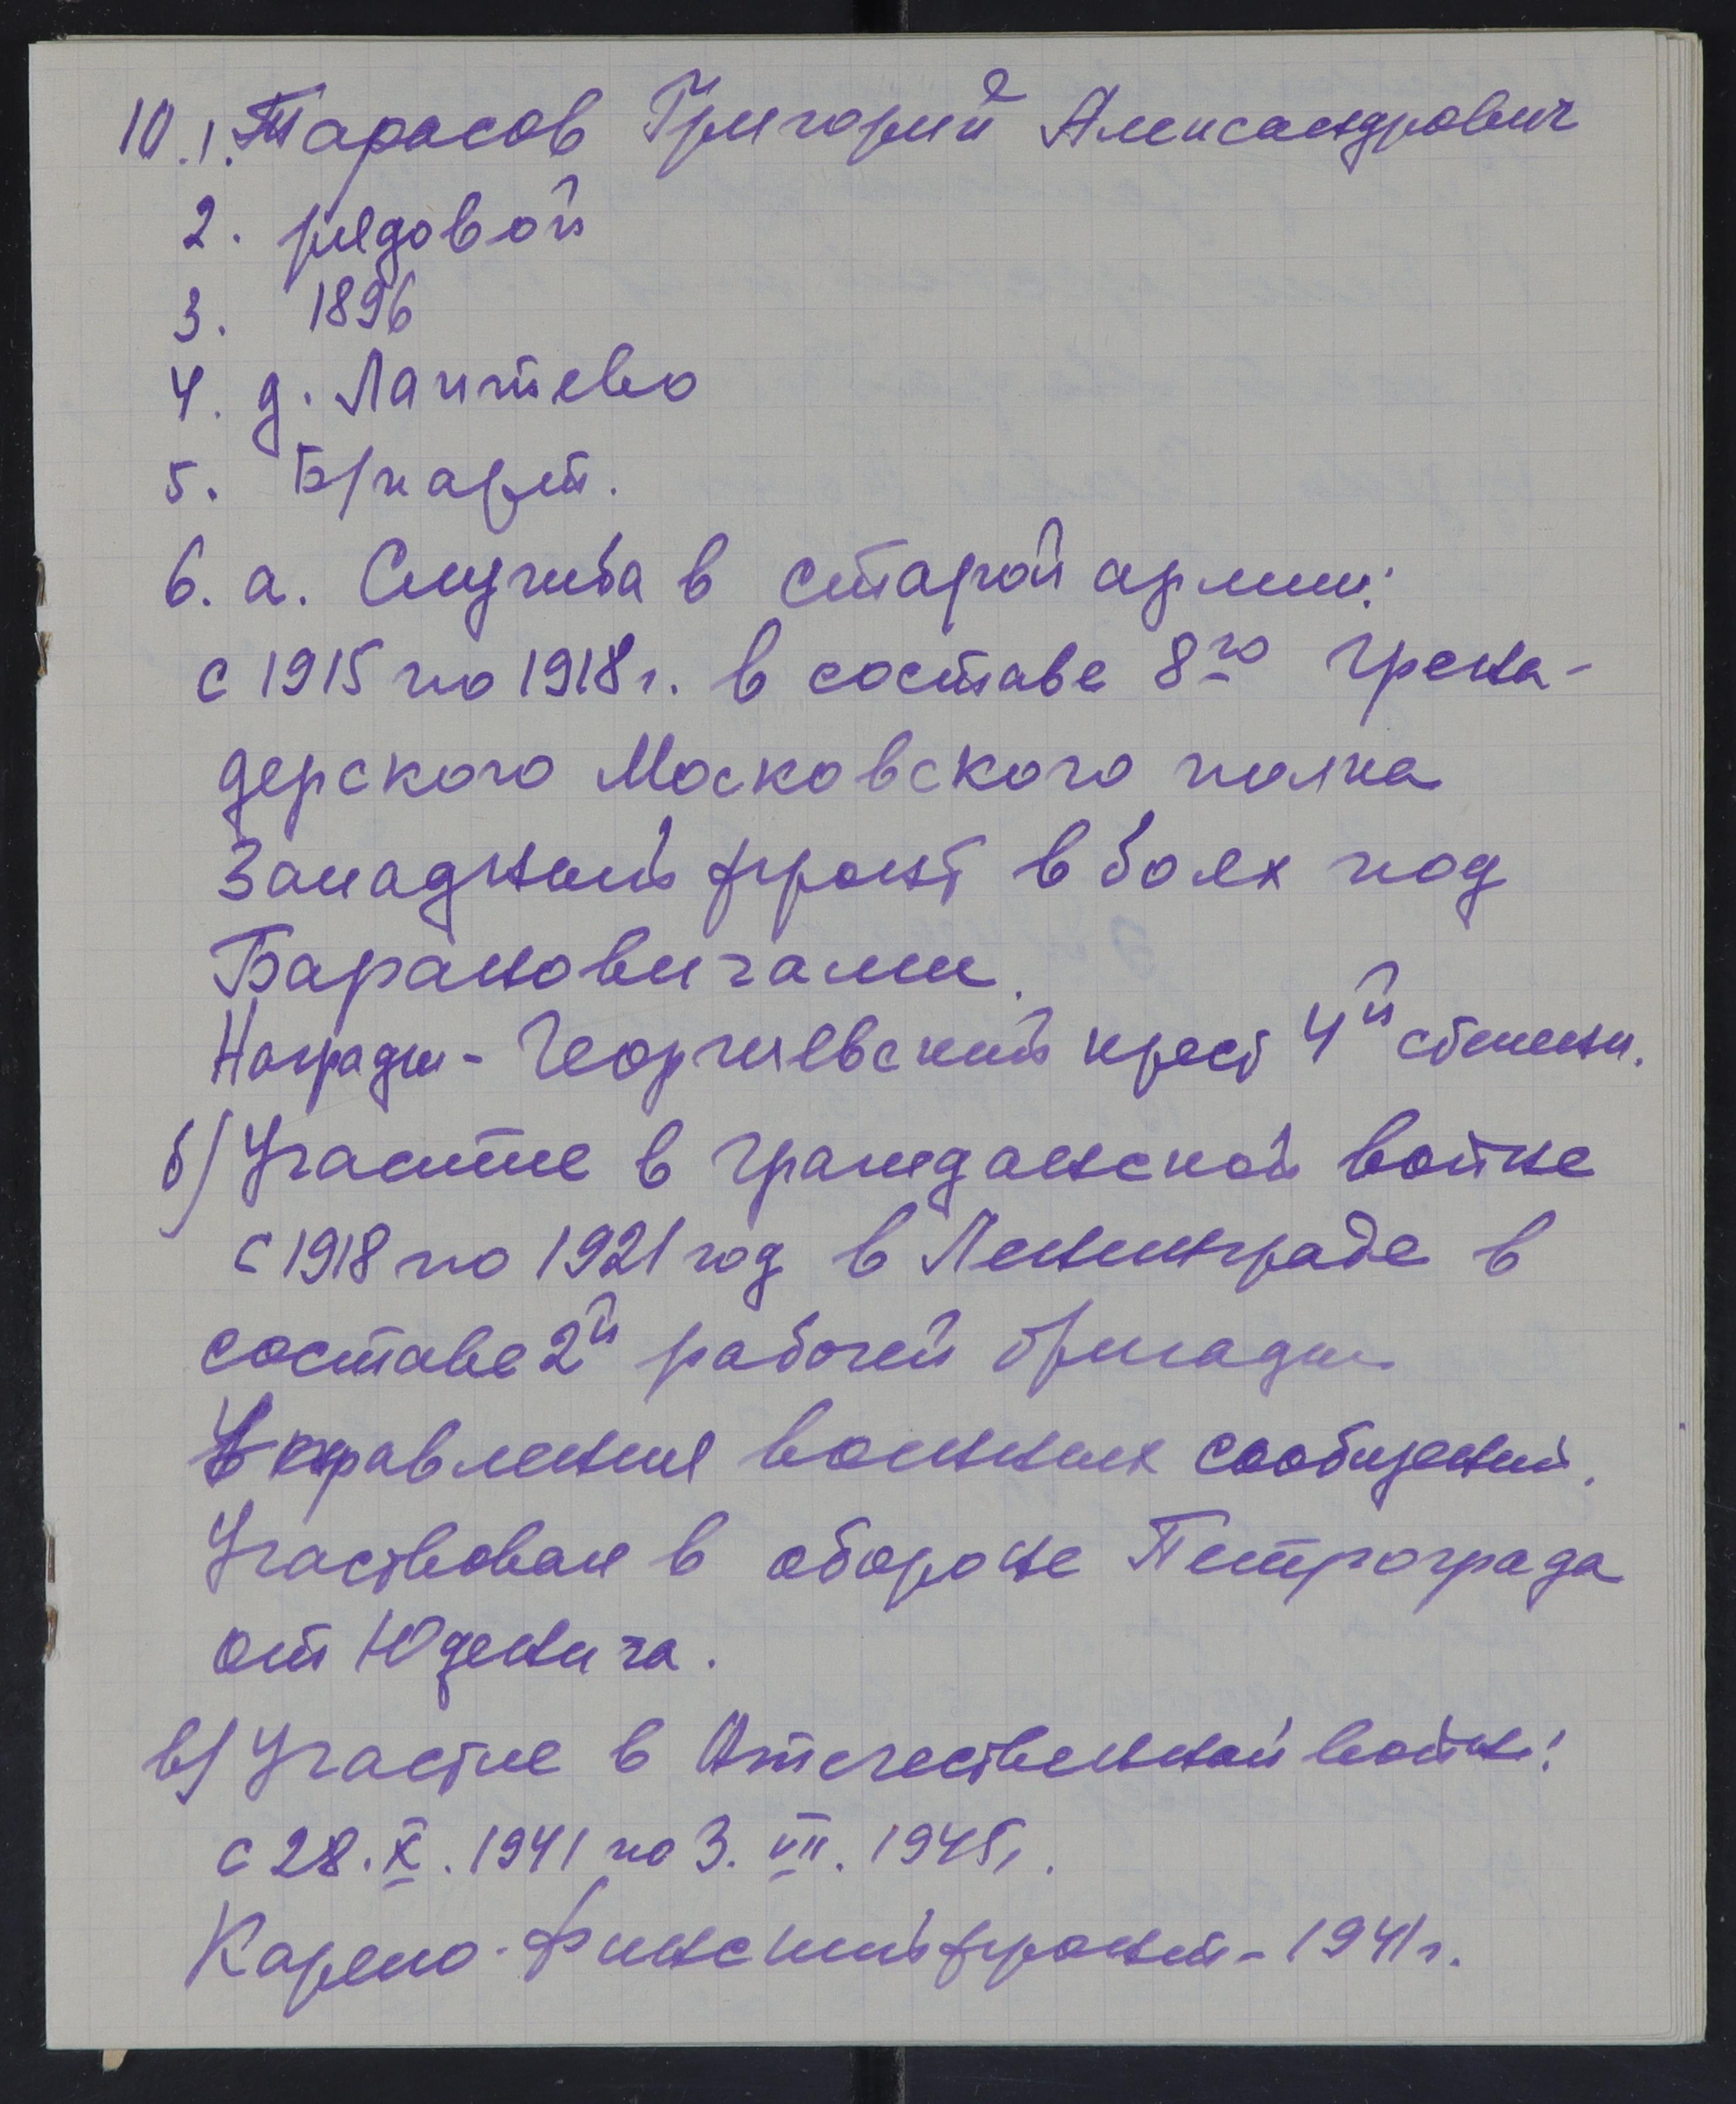 10.1. Тарасов Григорий Александрович
2. рядовой
3. 1896
4. д. Лаптево
5. Б/парт.
6. а. Служба в старой армии:
с 1915 по 1918 г. в составе 8го Грена-
дерского Московского полка
Западный фронт в боях под
Барановичами.
Награды - Георгиевский крест 4й степени.
б) Участие в гражданской войне
с 1918 по 1921 год в Ленинграде в
составе 2й рабочей бригады
Управления военных сообщений.
Участвовал в обороне Петрограда
от Юденича.
в) Участие в Отечественной войне:
с 28.X.1941 по 3.VII.1945г.
Карело-Финский фронт - 1941 г.